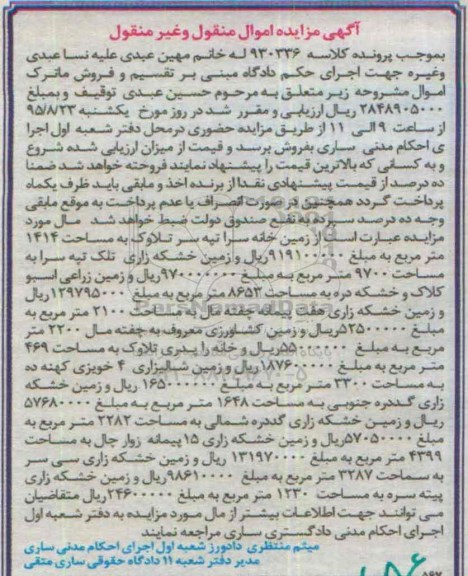 آگهی مزایده اموال منقول وغیر منقول
بموجب پرونده کلاسه ۹۳۰۳۳۶ له خانم مهین عبدی علیه نسا عبدی
وغیره جهت اجرای حکم دادگاه مبنی بر تقسیم و فروش ماترک
اموال مشروحه زیر متعلق به مرحوم حسین عبدی توقیف و بمبلغ
۲۸۴۸۹۰۵۰۰۰ ریال ارزیابی و مقرر شد در روز مورخ یکشنبه ۹۵/۸/۲۳
از ساعت ۹ الی ۱۱ از طریق مزایده حضوری درمحل دفتر شعبه اول اجرا
ی احکام مدنی ساری بفروش برسد و قیمت از میزان ارزیابی شده شروع
و به کسانی که بالاترین قیمت را پیشنهاد نمایند فروخته خواهد شد ضمنا
ده درصد از قیمت پیشنهادی نقدا از برنده اخذ و مابقی باید ظرف یکماه
پرداخت گردد همچنین در صورت انصراف یا عدم پرداخت به موقع مابقی
وجه ده درصد سپرده به نفع صندوق دولت ضبط خواهد شد مال مورد
مزایده عبارت است از زمین خانه سرا تپه سر تلاوک به مساحت ۱۴۱۴
متر مربع به مبلغ ۹۱۹۱۰۰۰۰۰ریال و زمین خشکه زاری تلک تپه سرا به
مساحت ۹۷۰۰ متر مربع به مبلغ ۹۷۰۰۰۰۰۰۰ریال و زمین زراعی اسبو
کلاک و خشکه دره به مساحت ۸۶۵۳ متر مربع به مبلغ ۱۲۹۷۹۵۰۰۰ریال
و زمین خشکه زاری هفت پیمانه جفته مال به مساحت ۲۱۰۰ متر مربع به
مبلغ ۵۲۵۰۰۰۰۰ریال و زمین کشاورزی معروف به جفته مال ۲۲۰۰ متر
مربع به مبلغ ۵۵۰۰۰۰۰۰ریال و خانه را پدری تلاوک به مساحت ۴۶۹
متر مربع به مبلغ ۱۸۷۶۰۰۰۰۰ریال و زمین شالیزاری ۴ خویزی کهنه ده
به مساحت ۳۳۰۰ متر مربع به مبلغ ۱۶۵۰۰۰۰۰۰ ریال و زمین خشکه
زاری گددره جنوبی به مساحت ۱۶۴۸ متر مربع به مبلغ ۵۷۶۸۰۰۰۰
ریال و زمین خشکه زاری گددره شمالی به مساحت ۲۲۸۲ متر مربع به
مبلغ ۵۷۰۵۰۰۰۰ریال و زمین خشکه زاری ۱۵ پیمانه زوار چال به مساحت
۴۳۹۹ متر مربع به مبلغ ۱۳۱۹۷۰۰۰۰ ریال و زمین خشکه زاری سی سر
به سماحت ۳۲۸۷ متر مربع به مبلغ ۹۸۶۱۰۰۰۰ریال و زمین خشکه زاری
پیته سره به مساحت ۱۲۳۰ متر مربع به مبلغ ۲۴۶۰۰۰۰۰ریال متقاضیان
می توانند جهت اطلاعات بیشتر از مال مورد مزایده به دفتر شعبه اول
اجرای احکام مدنی دادگستری ساری مراجعه نمایند
میثم منتظری دادورز شعبه اول اجرای احکام مدنی ساری
مدیر دفتر شعبه ۱۱ دادگاه حقوقی ساری متقی